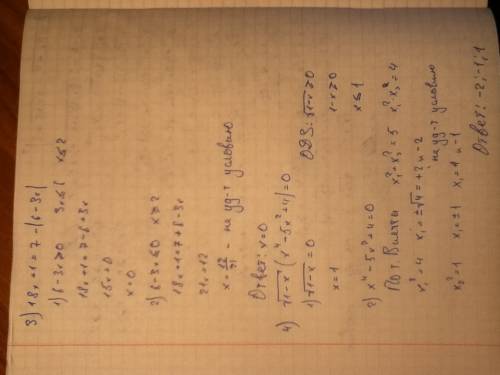 3) 18x+1=7-|6-3x|
1) 6-3x≥0 3x≤6 x≤2
18x+1=7-6+3x
15x=0
x=0
2) 6-3x≤0 x≥2
18x+1=7+6-3x
21x=12
x=12/21 - не уд-т условию
Ответ: x=0
4) √1-x (x⁴-5x²+4)=0
1) √1-x=0 ОДЗ: √1-x≥0
x=1 1-x≥0
x≤1
2) x⁴-5x²+4=0
По т. Виетта x₁²+x₂²=5 x₁²·x₂²=4
x₁²=4 x₁=±√4=+2 и -2
не уд-т условию
x₂²=1 x₁=±1 x₁=1 и -1
Ответ: -2; -1; 1